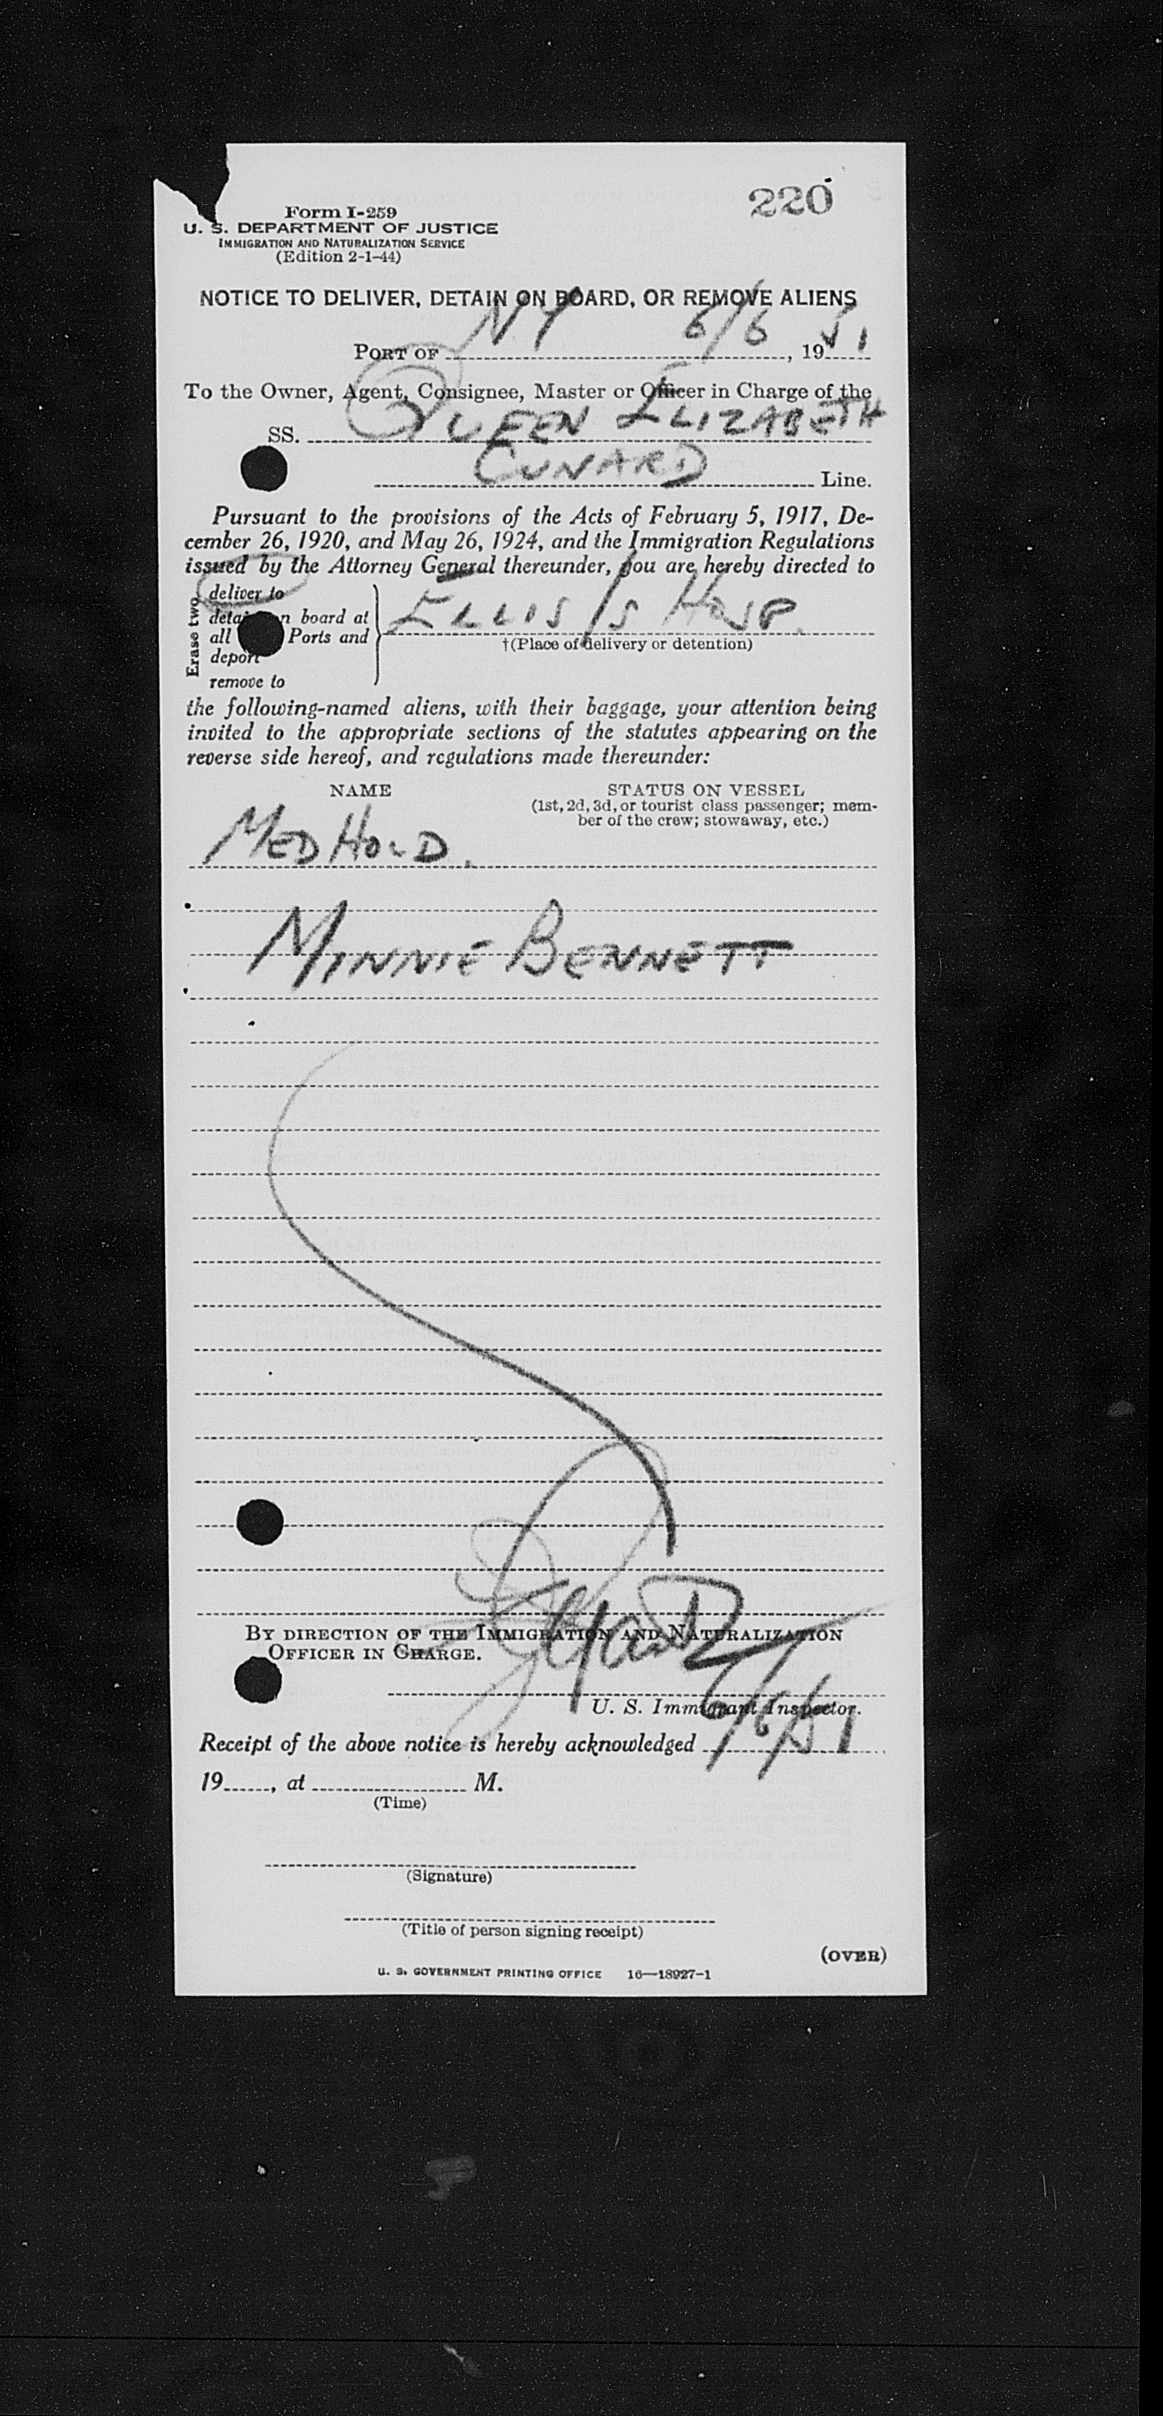 220
Form I-259
U. S. DEPARTMENT OF JUSTICE
IMMIGRATION AND NATURALIZATION SERVICE
(Edition 2-1-44)
NOTICE TO DELIVER, DETAIN ON BOARD, OR REMOVE ALIENS
PORT OF NY 6/6, 1951
To the Owner, Agent, Consignee, Master or Officer in Charge of the
SS. QUEEN ELIZABETH
CUNARD Line.
Pursuant to the provisions of the Acts of February 5, 1917, De-
cember 26, 1920, and May 26, 1924, and the Immigration Regulations
issued by the Attorney General thereunder, you are hereby directed to
Erase two
deliver to
detain on board at
all Ports and
deport
remove to
ELLIS Is HOSP.
†(Place of delivery or detention)
the following-named aliens, with their baggage, your attention being
invited to the appropriate sections of the statutes appearing on the
reverse side hereof, and regulations made thereunder:
NAME STATUS ON VESSEL
(1st, 2d, 3d, or tourist class passenger; mem-
ber of the crew; stowaway, etc.)
MED HOLD.
MINNIE BENNETT
BY DIRECTION OF THE IMMIGRATION AND NATURALIZATION
OFFICER IN CHARGE.
U. S. Immigrant Inspector.
Receipt of the above notice is hereby acknowledged 6/6/51
19......, at .................... M.
(Time)
(Signature)
(Title of person signing receipt)
(OVER)
U. S. GOVERNMENT PRINTING OFFICE 16—18927-1